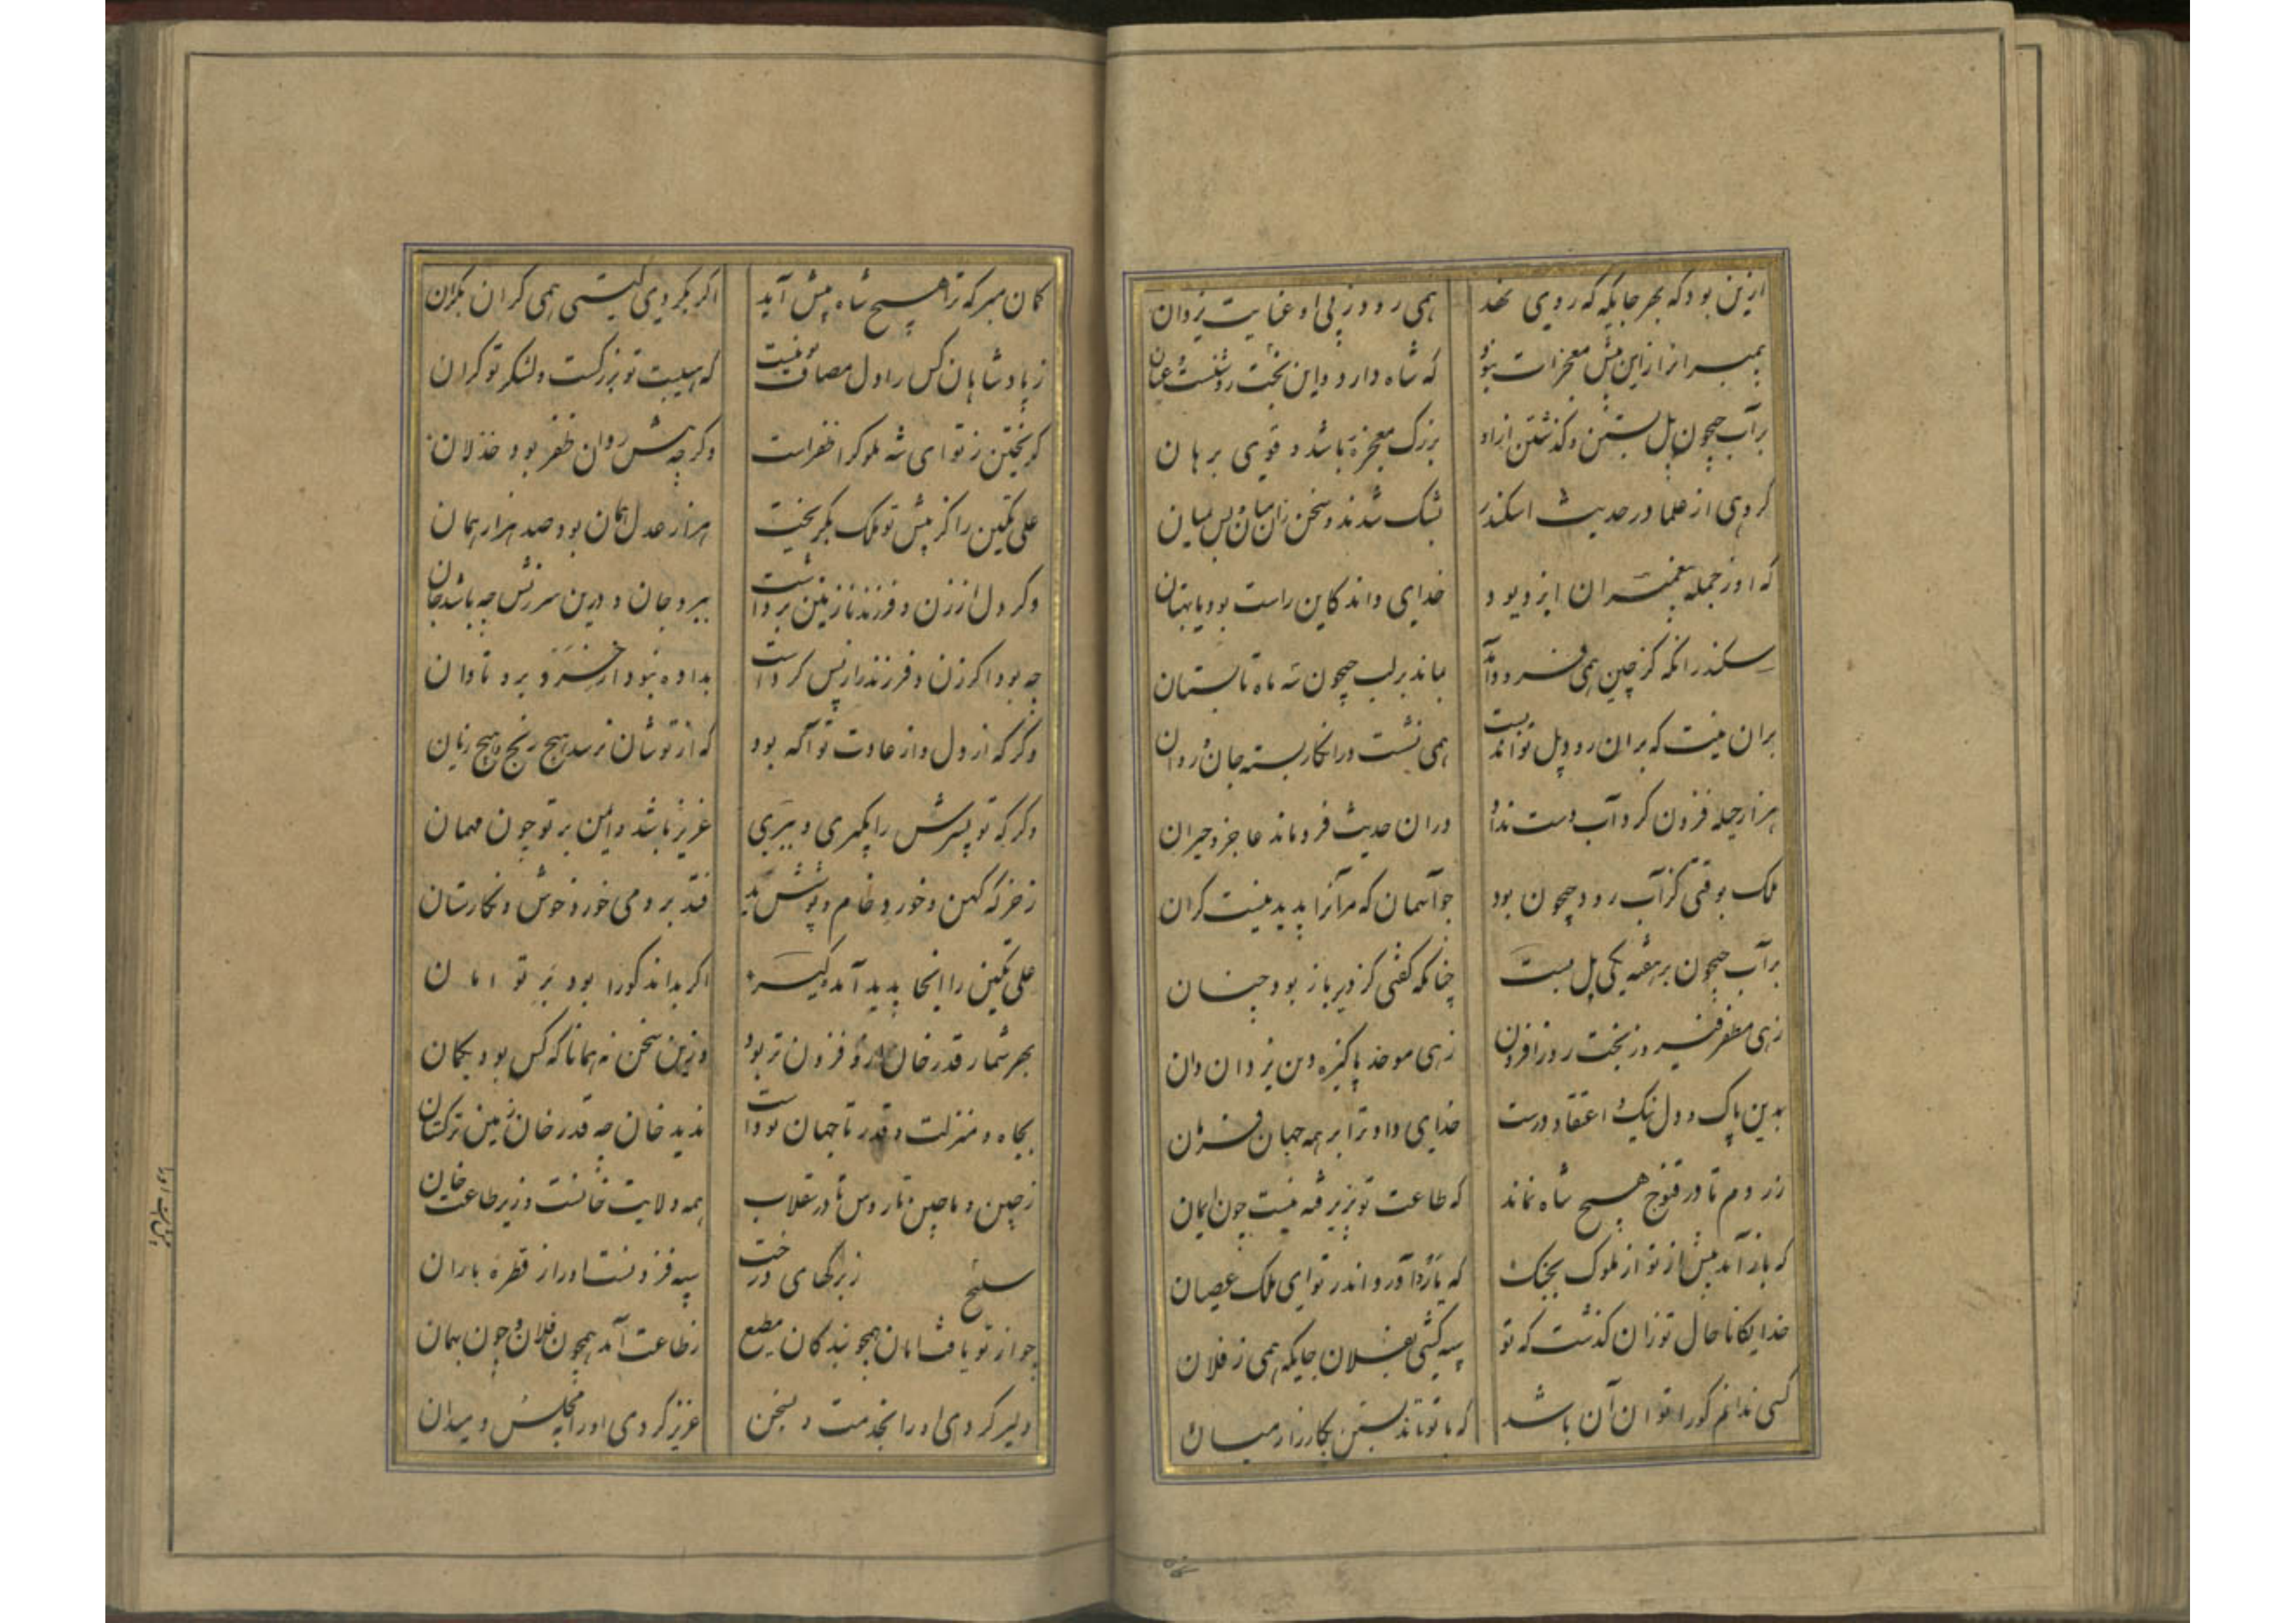 ازین بود که بهر جایگه که روی نهد
همی رود ز پی او عنایت یزدان
پیمبرانرا زاین بیش معجزات نبود
که شاه دارد و این بخت روشنست عیان
بر آب جیحون پل بستن و گذشتن ازاو
بزرگ معجزهٔ باشد و قوی برهان
گروهی از علما در حدیث اسکندر
بشک شدند و سخن زان میان پس میان
که او ز جمله پیغمبران ایزد بود
خدای داند کاین راست بود یا بهتان
سکندر آنکه کز چین همی فرود آمد
بماند بر لب جیحون سه ماه تابستان
بران نیت که بران رود پل تواند بست
همی نشست و در آن کار بسته جان و روان
هزار حیله فزون کرد و آب دست نداد
در ان حدیث فرو ماند عاجز و حیران
ملک بوقتی کز آب رود جیحون بود
چو آسمان که مر آنرا پدید نیست کران
بر آب جیحون بر هفته یکی پل بست
چنانکه گفتی کز دیر باز بود چنان
زهی مظفر فیروز بخت روز افزون
زهی موحد پاکیزه دین یزدان دان
بدین پاک و دل نیک و اعتقاد درست
خدای داد ترا بر همه جهان فرمان
ز روم تا در قنوج هیچ شاه نماند
که طاعت تو نپذیرفته نیست چون ایمان
که باز آمد پیش از تو از ملوک بجنگ
که یازد آورد اندر تو ای ملک عصیان
خدایگانا حال تو زان گذشت که تو
سپه کشی بفلان جایگه همی ز فلان
کسی ندانم کورا توان آن باشد
که با تو تاند بستن بکارزار میان
گمان مبر که ترا هیچ شاه پیش آید
اگر بگردی گیتی همی کران بکران
ز پادشاهان کس را دل مصاف تو نیست
که هیبت تو بزرگست و لشکر تو گران
گریختن ز تو ای شه ملوک را ظفر است
وگر چه پیش روان ظفر بود خذلان
علی تکین را کز پیش تو ملک بگریخت
هزار عدل همان بود صد هزار همان
وگر دل از زن و فرزند نازنین برداشت
ببرد جان و درین سرزنش چه باشد جان
چه بود اگر زن و فرزند را ز پس کرد است
بداده نبود ار سر برد تاوان
وگر که از دل و از عادت تو آگه بود
که از تو شان نرسد هیچ رنج و هیچ زیان
وگر که تو پسرش را بگیری و ببری
عزیز باشد و ایمن بر تو چون مهمان
ز خرگه کهن و خورد خام و پوشش بد
فتد برومی خورد خوش و نگارستان
علی تکین را اینجا پدید آمد
اگر بداند کورا بود بر تو امان
بهر شمار قدر خان ازو فزون تر بود
وزین سخن نه همانا که کس بود بگمان
بجاه و منزلت و قدر تا جهان بود است
ندید خان چه قدر خان زمین ترکستان
ز چین و ماچین تا روس تا در سقلاب
همه ولایت خانست و زیر طاعت خان
سلیح ز برگهای درخت
سپه فزونست اورا ز قطره باران
چو از تو یافت امان همچو بندگان مطیع
ز طاعت آمد همچون فلان و چون بهمان
دلیر کردی اورا بخدمت و بسخن
عزیز کردی اورا بمجلس و میدان